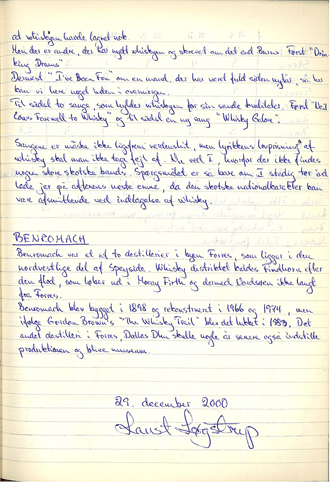 at whiskyen havde lagret nok.
Men der er andre, der har nydt whiskyen og skrevet om det end Burns. Først "Drin
king Drams"
Dernæst "I've Been Fou" om en mand, der har været fuld siden nytår, så her
kan vi lære noget uden i overmorgen.
Til sidst to sange, som hylder whiskyen for sin sande kvalitet. Først "Neil
Gows Farewell to Whisky" og til sidst en ny sang "Whisky Galore".
Sangene er måske ikke ligefrem verdenshit, men lyrikkens lovprisning af
whisky skal man ikke tage fejl af. Nu ved I, hvorfor der ikke findes
nogen store skotske bands. Spørgsmålet er så bare om I stadig tør ad
lede jer på aftenens næste emne, da den skotske nationalkarakter kan
være afsmittende ved indtagelse af whisky.
BENROMACH
Benromach var et af to destillerier i byen Forres, som ligger i den
nordvestlige del af Speyside. Whisky distriktet kaldes Findhorn efter
den flod, som løber ud i Moray Firth og dermed Nordsøen ikke langt
fra Forres.
Benromach blev bygget i 1898 og rekonstrueret i 1966 og 1974, men
ifølge Gordon Brown's "The Whisky Trail" blev det lukket i 1983. Det
andet destilleri i Forres, Dallas Dhu skulle nogle år senere også indstille
produktionen og blive museum.
29. december 2000
Løgstrup